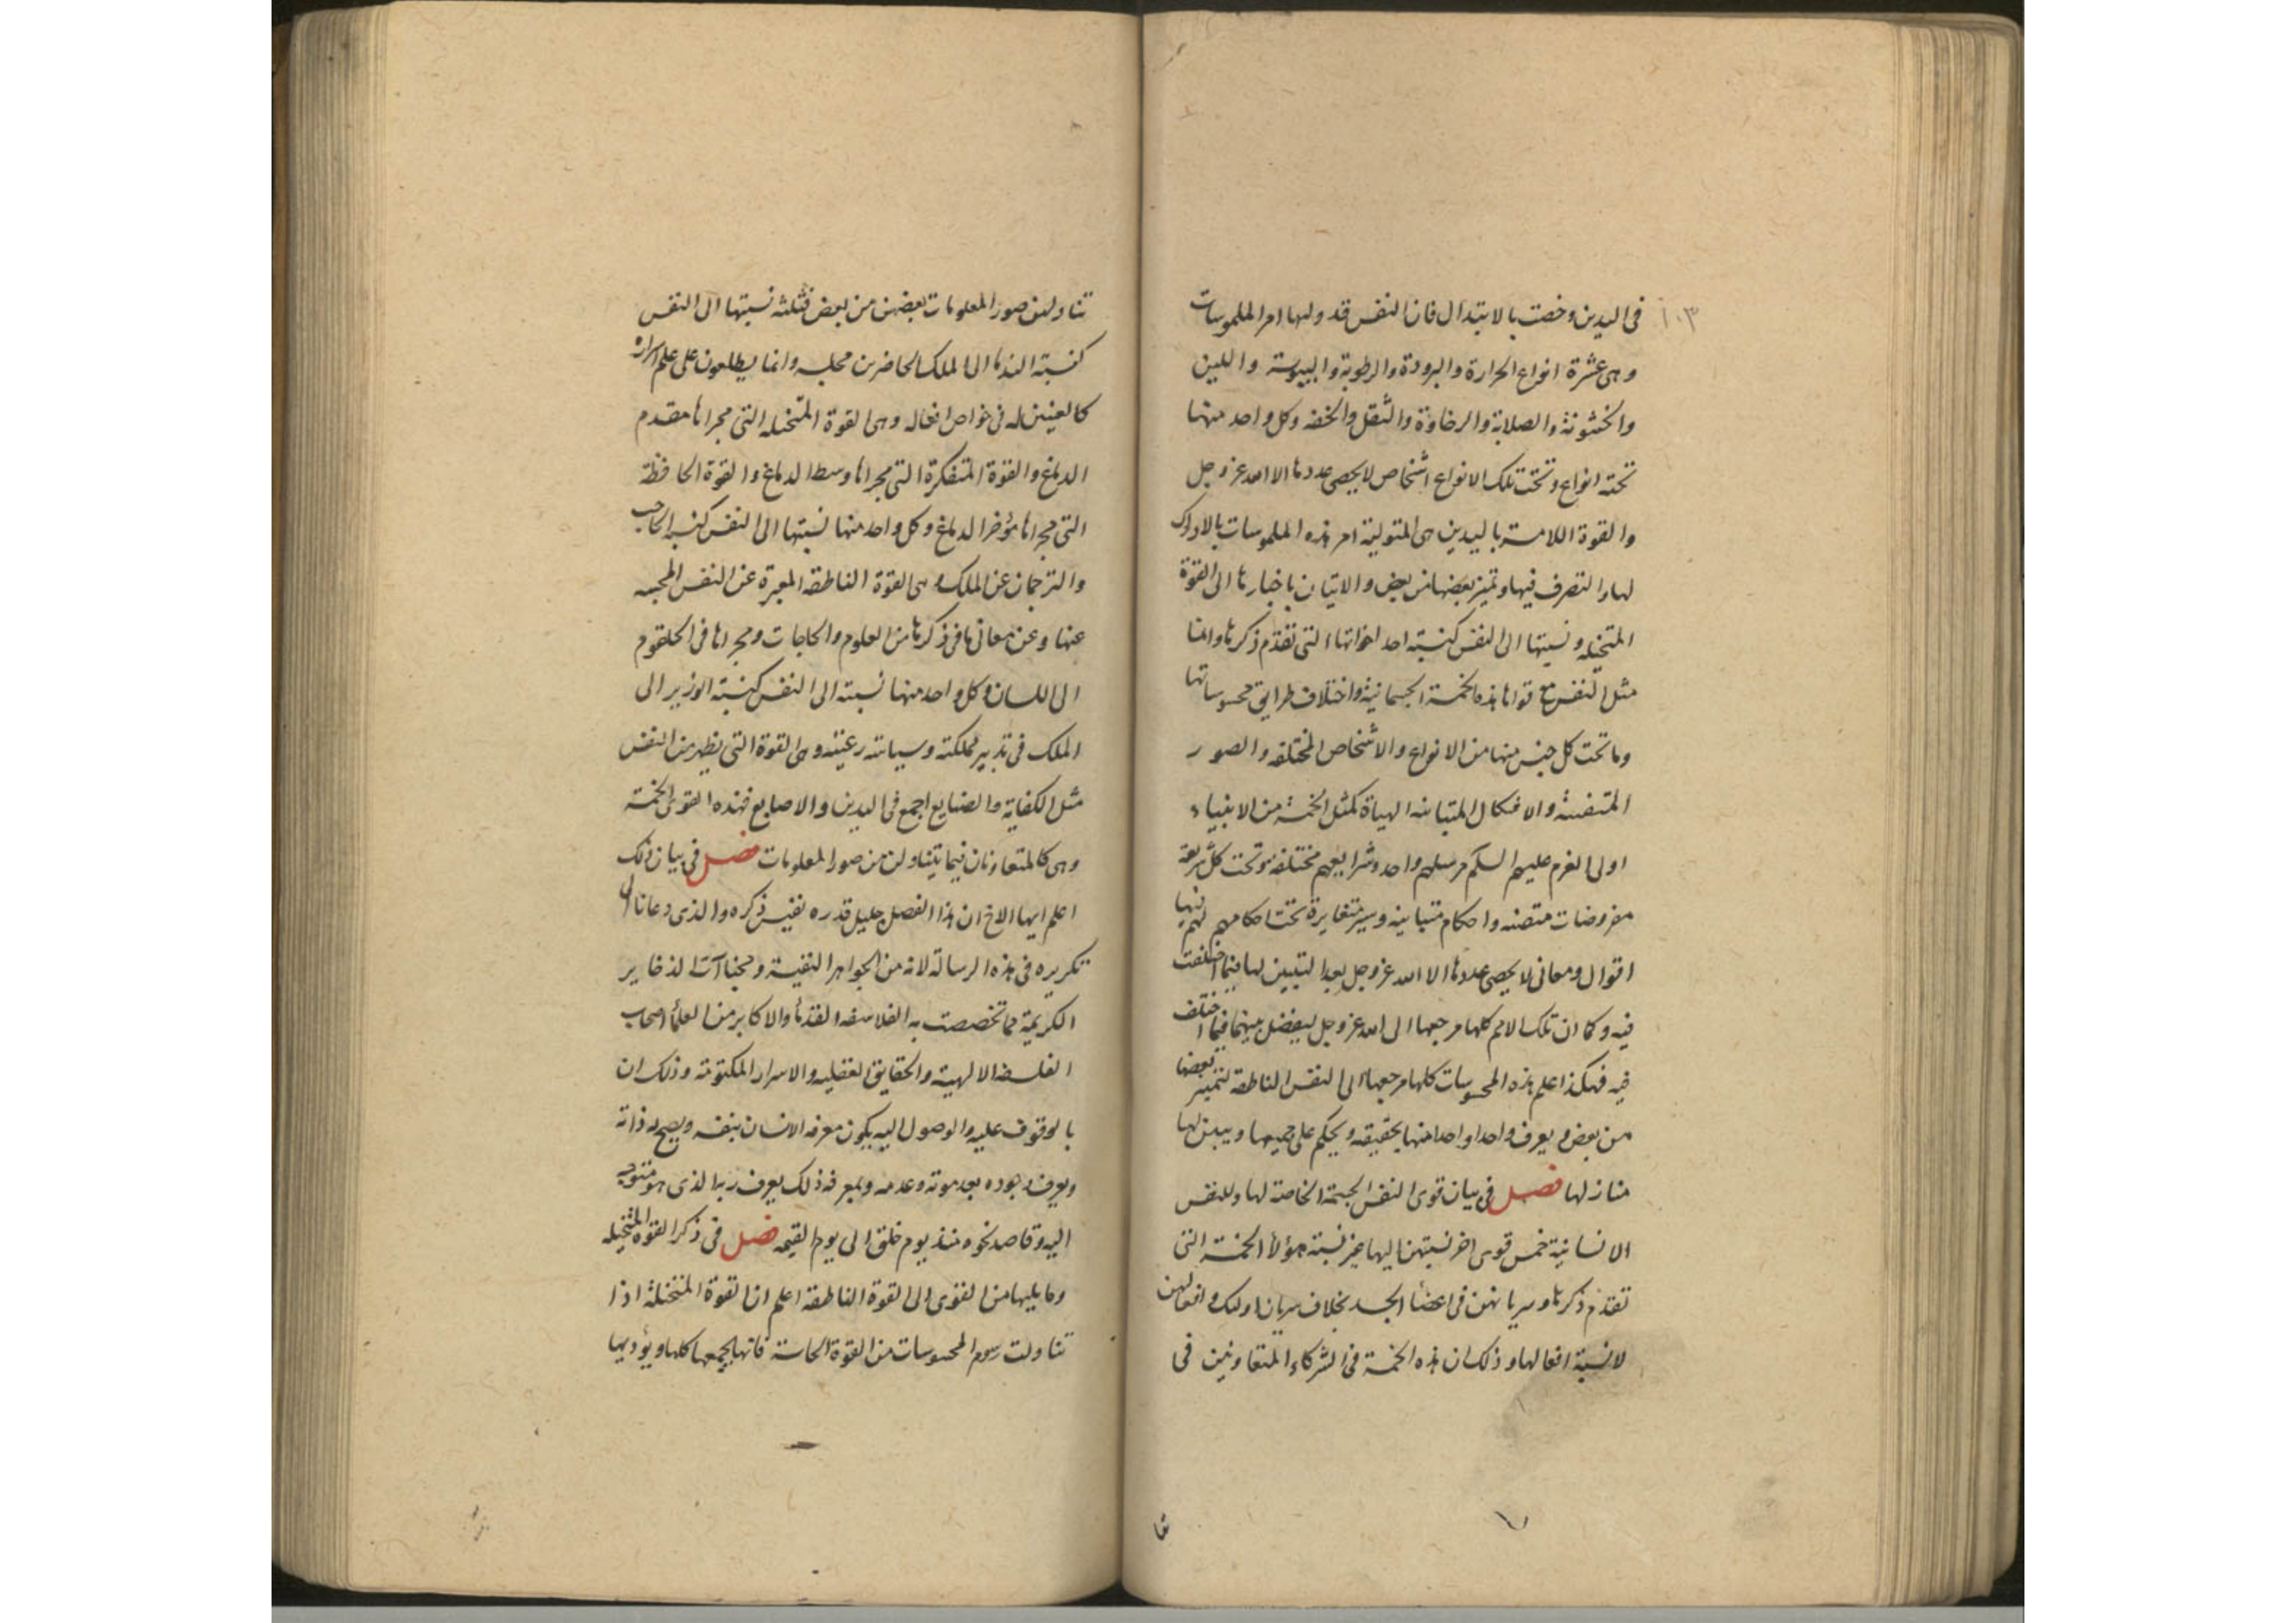 ١٠٣
فى اليدين وخصت بالابتدال فان النفس قد ولها امر الملموسات
وهى عشرة انواع الحرارة والبرودة والرطوبة واليبوسة واللين
والخشونة والصلابة والرخاوة والثقل والخفه وكل واحد منها
تحته انواع وتحت تلك الانواع اشخاص لا يحصى عددها الا الله عز وجل
والقوة اللامسة باليدين هى المتولية امر هذه الملموسات بالادراك
لها والتصرف فيها وتميز بعضها من بعض والاتيان باخبارها الى القوة
المتخيله ونسبتها الى النفس كنسبة احد اخواتها التى تقدم ذكرها وانما
مثل النفس مع قواها هذه الخمسة الجسمانية واختلاف طرايق محسوساتها
وما تحت كل جنس منها من الانواع والاشخاص المختلفه والصور
المتفننة والاشكال المتباينه الهياة كمثل الخمسة من الانبياء
اولى العزم عليهم السلم مرسلهم واحد وشرايعهم مختلفة وتحت كل شريعة
مفروضات متصنه واحكام متباينه وسير متغايرة تحت احكامهم لهم فيها
اقوال ومعانى لا يحصى عددها الا الله عز وجل بعد التبيين لها فيما اختلفت
فيه وكما ان تلك الامم كلها مرجعها الى الله عز وجل ليفصل بينها فيما اختلف
فيه فهكذا اعلم هذه المحسوسات كلها مرجعها الى النفس الناطقة لتميز بعضها
من بعض ويعرف واحدا واحدا منها بحقيقه ويحكم على جميعها ويبين لها
منازلها فصل فى بيان قوى النفس الجسمة الخاصة لها وللنفس
الانسانية خمس قوى اخر نسبتهن اليها غير نسبة هؤلأ الخمسة التى
تقدم ذكرها وسريانهن فى اعضأ الجسد بخلاف سريان اولئك وافعالهن
لانسبة افعالها وذلك ان هذه الخمسة فى الشركاء المتعاونين فى
تناولهن صور المعلومات بعضهن من بعض فثلثه نسبتها الى النفس
كنسبة الندما الى الملك الحاضرين مجلسه وانما يطلعون على علم اسراره
كالعينين له فى خواص افعاله وهى القوة المتخيله التى مجراها مقدم
الدماغ والقوة المتفكرة التى مجراها وسط الدماغ والقوة الحافظة
التى مجراها مؤخر الدماغ وكل واحد منها نسبتها الى النفس كنسبة الحاجب
والترجمان عن الملك وهى القوة الناطقه المعبرة عن النفس المجيبه
عنها وعن معانى ما فى ذكرها من العلوم والحاجات ومجراها فى الحلقوم
الى اللسان وكل واحد منها نسبته الى النفس كنسبة الوزير الى
الملك فى تدبير مملكته وسياسته رعيته وهى القوة التى يظهر من النفس
مثل الكفاية والصنايع اجمع فى اليدين والاصابع فهذه القوى الخمسة
وهى كالمتعاونان فيما يتناولن من صور المعلومات فصل فى بيان ذلك
اعلم ايها الاخ ان هذا الفصل جليل قدره نفيس ذكره والذى دعانا الى
تكريره فى هذه الرسالة لانه من الجواهر النفيسة ومخبآت الذخاير
الكريمة مما تخصصت به الفلاسفه القدمأ والاكابر من العلمأ اصحاب
الفلسفه الالهية والحقايق العقليه والاسرار المكتومة وذلك ان
بالوقوف عليه والوصول اليه يكون معرفه الانسان بنفسه ويصح له ذاته
ويعرف وجوده بعد موته وعدمه وبمعرفة ذلك يعرف ربه الذى هو متوجه
اليه وقاصد نحوه منذ يوم خلق الى يوم القيمه فصل فى ذكر القوة المتخيله
وما يليها من القوى الى القوة الناطقه اعلم ان القوة المتخيلة اذا
تناولت رسوم المحسوسات من القوة الحاسة فانها تجمعها كلها ويؤديها